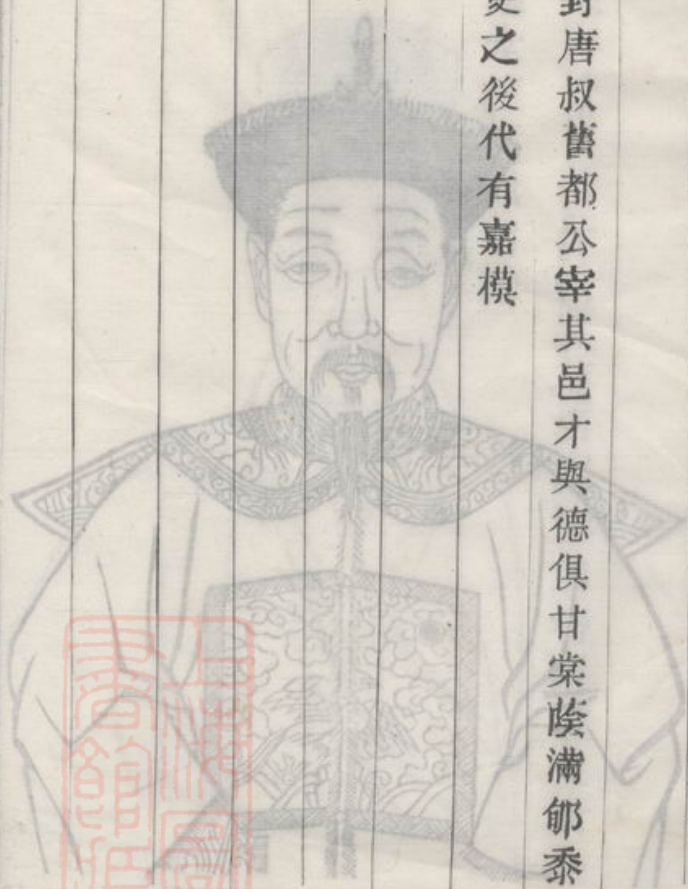 封唐叔舊都公宰其邑才與德俱甘棠蔭滿郇黍
之後代有嘉模